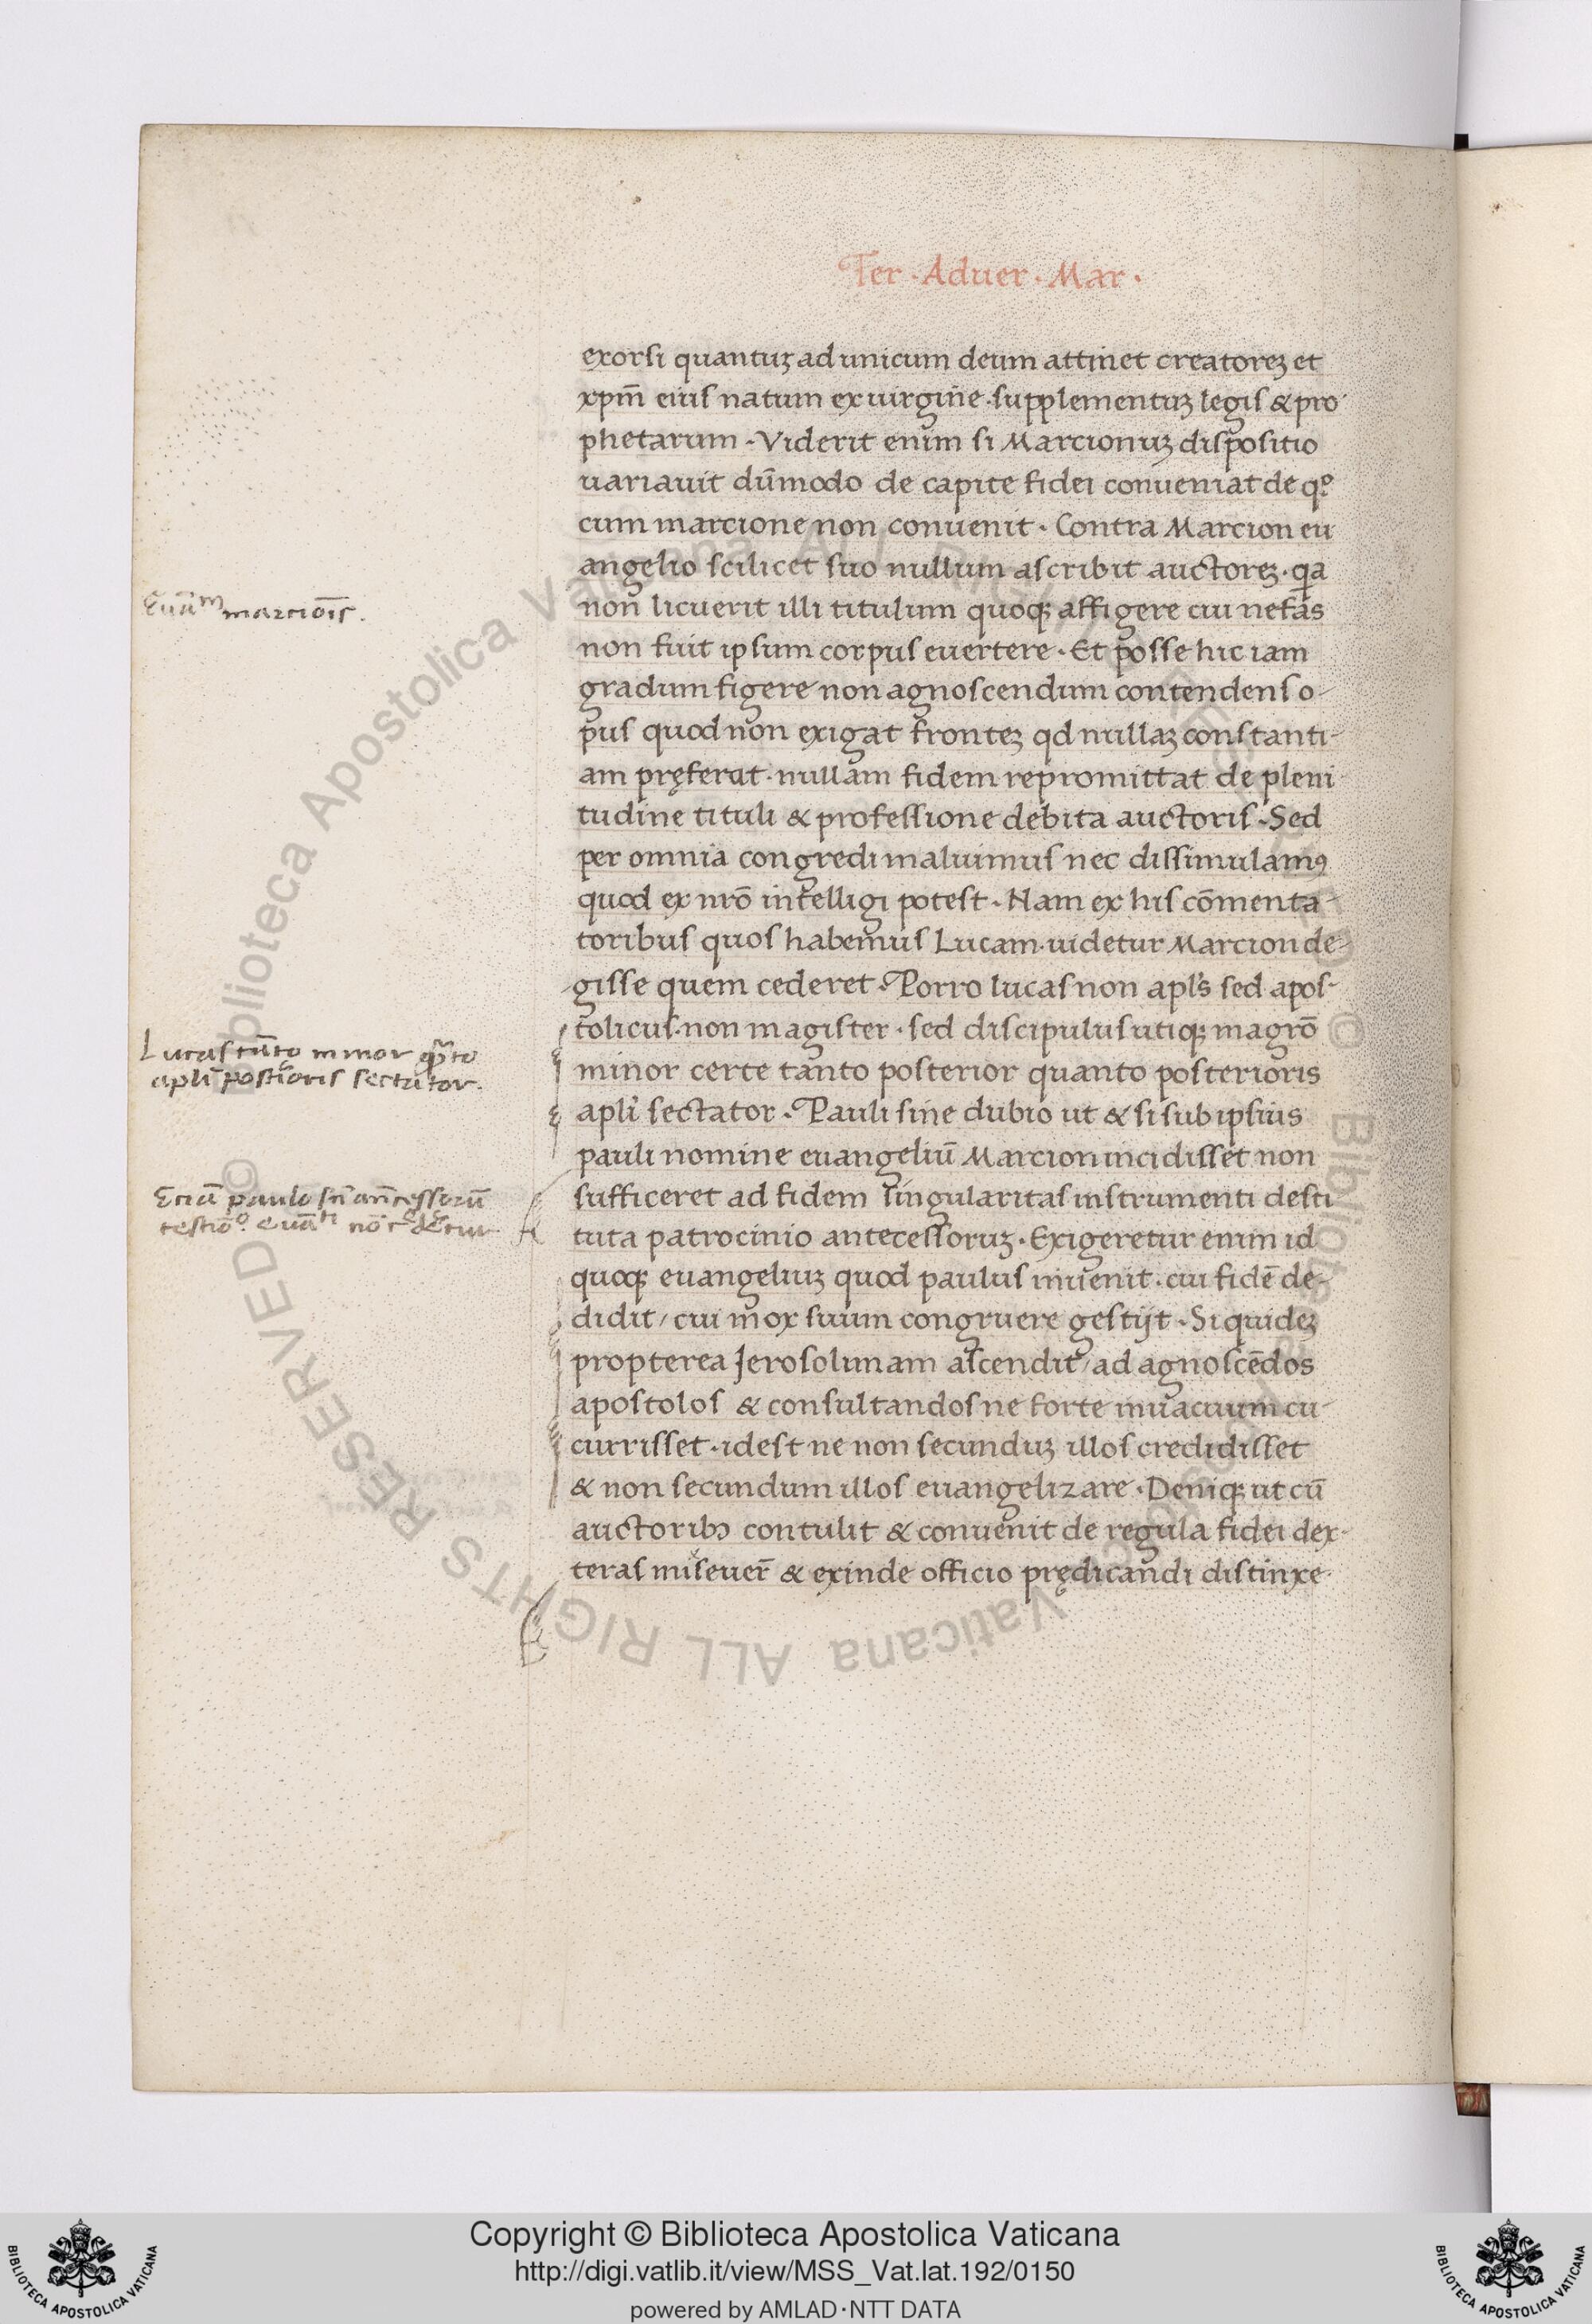 Ter · Aduer · Mar ·
exorsi quantuꝫ ad unicum deum attinet creatoreꝫ et
xpm̄ eius natum ex uirgine · supplementuꝫ legis & pro
phetarum · Viderit enim si Marcionuꝫ dispositio
uariauit dūmodo de capite fidei conueniat de qͦ
cum marcione non conuenit · Contra Marcion eu
angelio scilicet suo nullum ascribit auctoreꝫ · qa
non licuerit illi titulum quoqꝫ affigere cui nefas
Euā ͫ marciōis.
non fuit ipsum corpus euertere · Et posse hic iam
gradum figere non agnoscendum contendens o-
pus quod non exigat fronteꝫ qd nullaꝫ constanti-
am pręferat · nullam fidem repromittat de pleni
tudine tituli & professione debita auctoris · Sed
per omnia congredi maluimus nec dissimulamꝰ
quod ex nr̄o intelligi potest · Nam ex his cōmenta-
toribus quos habemus Lucam · uidetur Marcion de-
gisse quem cederet · Porro lucas non apl's sed apos-
tolicus · non magister · sed discipulus utiqꝫ magrō
minor certe tanto posterior quanto posterioris
Lucas tāto minor q̄to
apl'i post'ioris sectator.
apl'i sectator · Pauli sine dubio ut & si sub ipsius
pauli nomine euangeliū Marcion incidisset non
sufficeret ad fidem singularitas instrumenti desti
tuta patrocinio antecessoruꝫ · Exigeretur enim id
Eciā paulo sn̄ ān̄cessorū
quoqꝫ euangeliuꝫ quod paulus inuenit · cui fidē de-
didit / cui mox suum congruere gestijt · Si quideꝫ
propterea Jerosolimam ascendit / ad agnoscēdos
apostolos & consultandos ne forte inuacuum cu-
currisset · idest ne non secunduꝫ illos credidisset
& non secundum illos euangelizare · Deniqꝫ ut cū
auctoribꝫ contulit & conuenit de regula fidei dex-
teras miseuer̄ & exinde officio prędicandi distinxe-
© Biblioteca Apostolica Vaticana ALL RIGHTS RESERVED
© Biblioteca Apostolica Vaticana ALL RIGHTS RESERVED
Copyright © Biblioteca Apostolica Vaticana
http://digi.vatlib.it/view/MSS_Vat.lat.192/0150
powered by AMLAD·NTT DATA
BIBLIOTECA APOSTOLICA VATICANA
BIBLIOTECA APOSTOLICA VATICANA